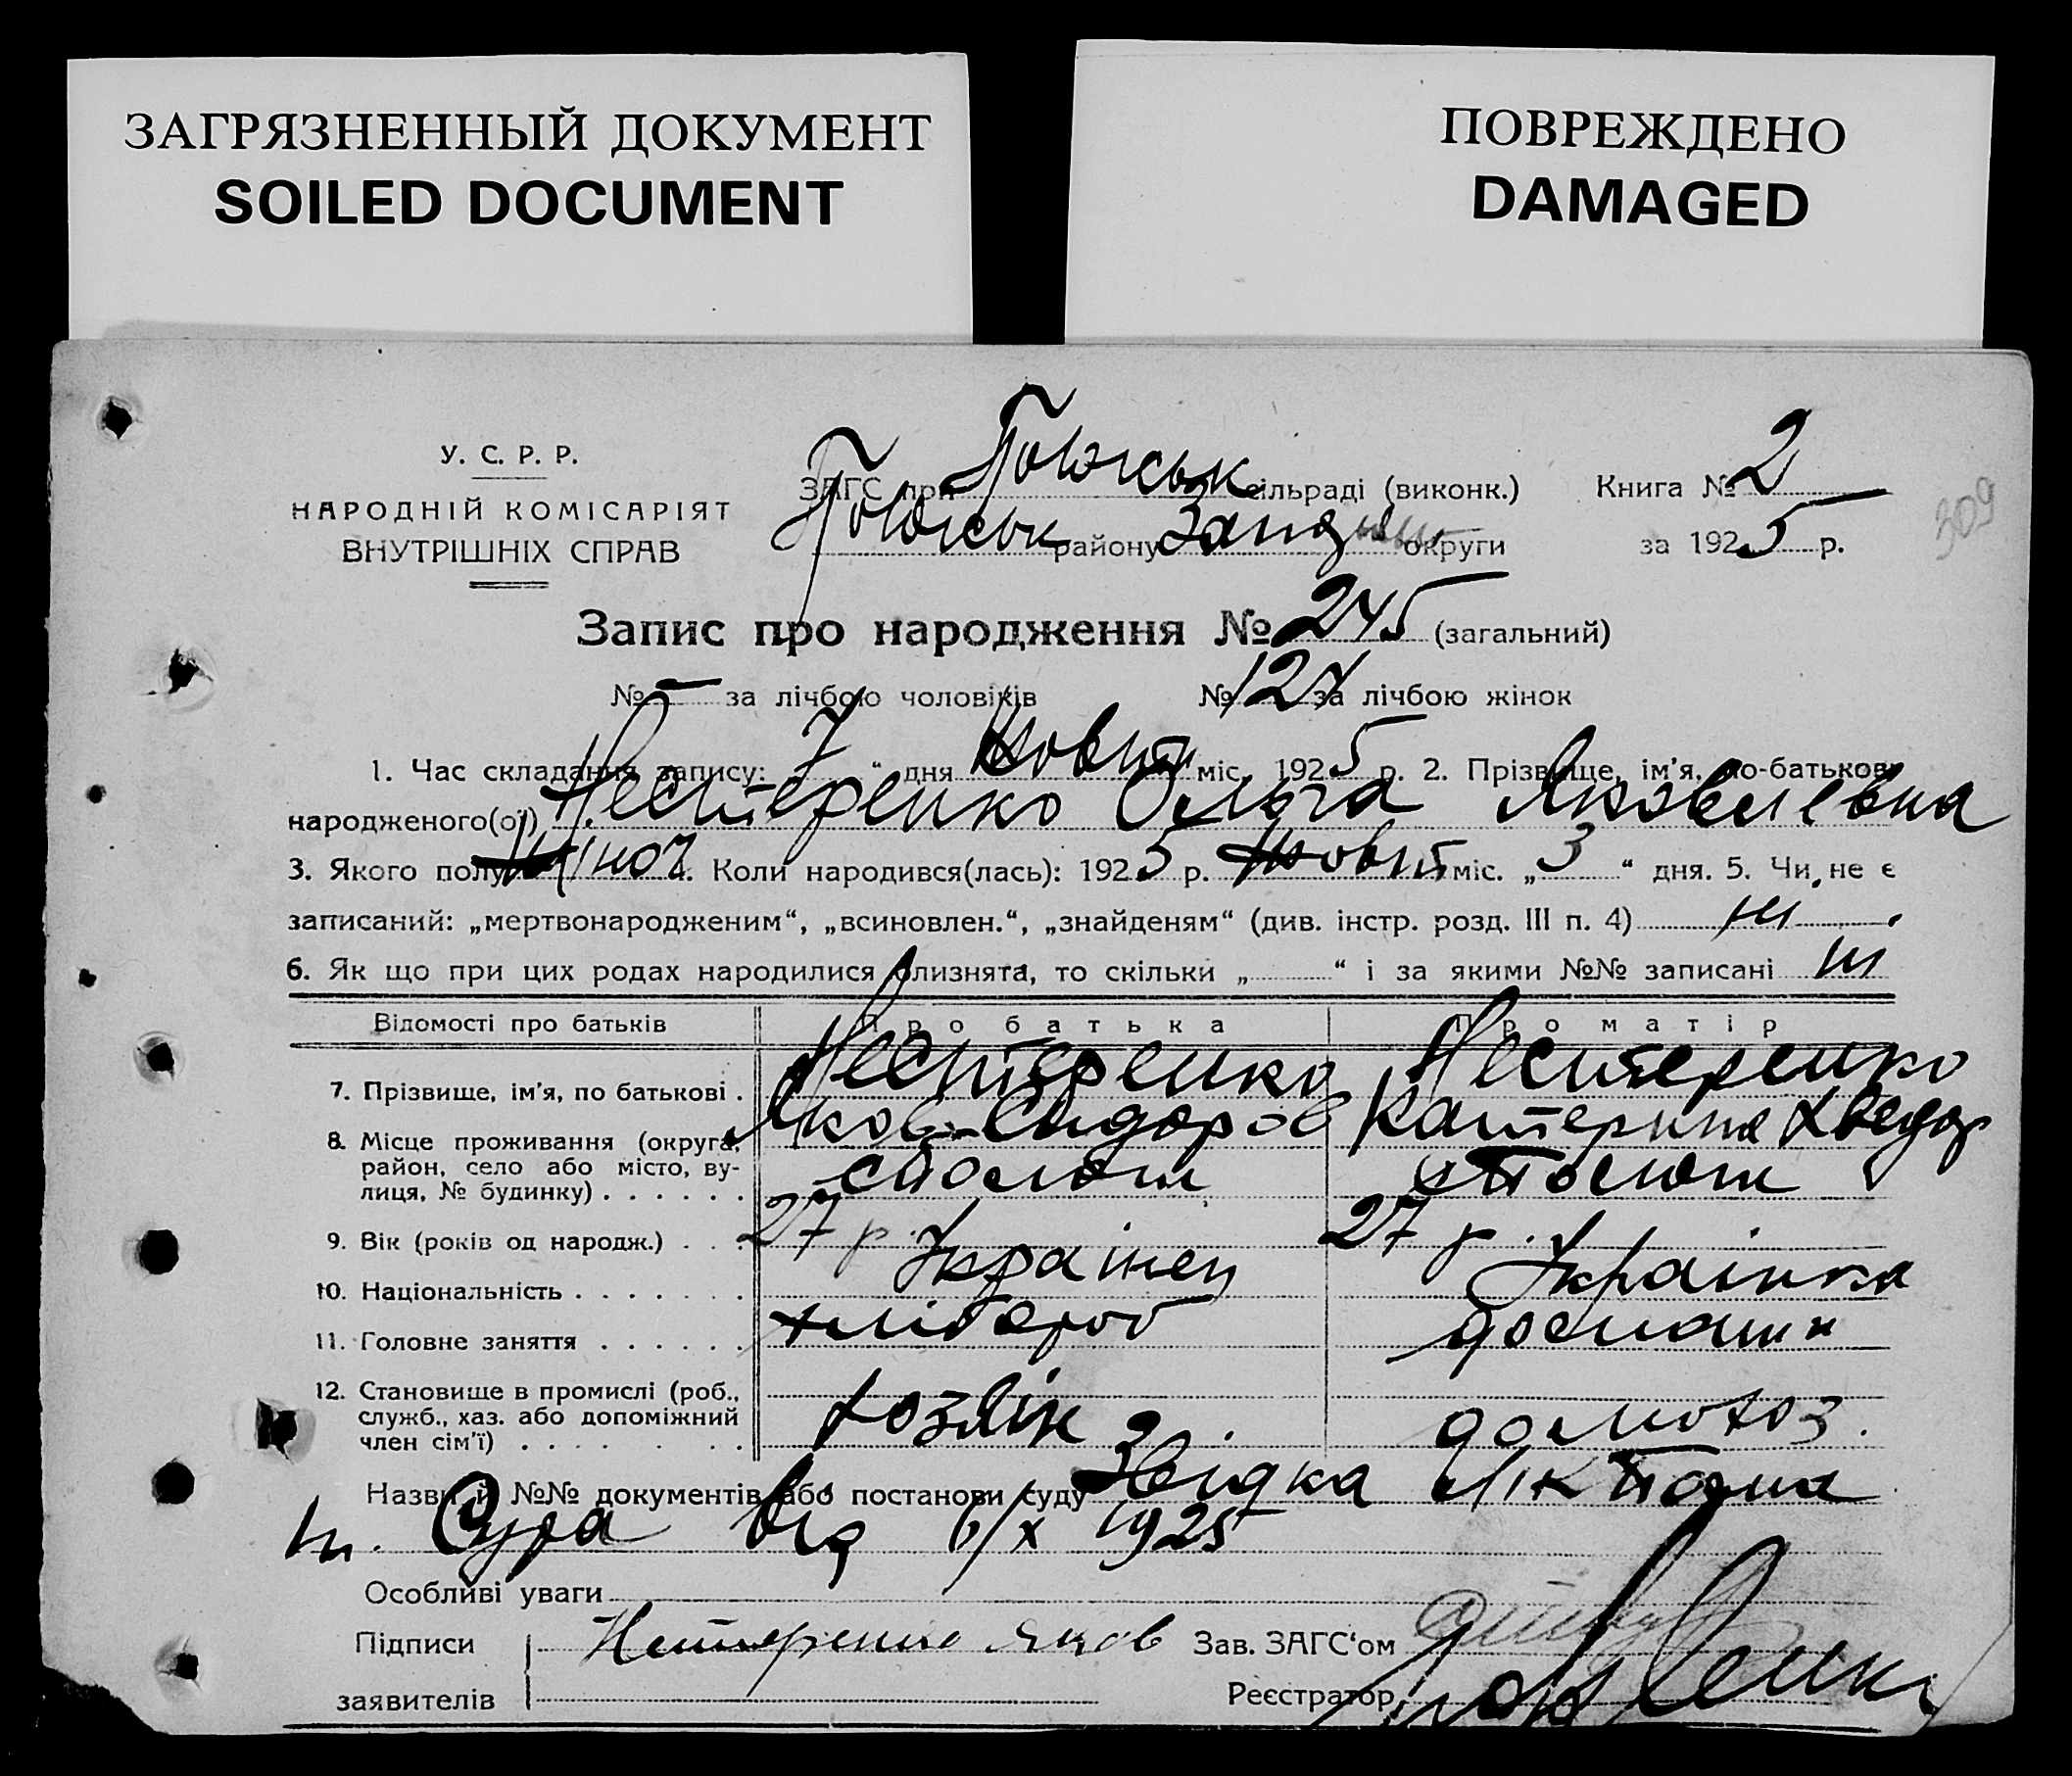 ЗАГРЯЗНЕННЫЙ ДОКУМЕНТ
SOILED DOCUMENT
ПОВРЕЖДЕНО
DAMAGED
У. С. Р. Р.
НАРОДНІЙ КОМІСАРІЯТ
ВНУТРІШНІХ СПРАВ
ЗАГС при сільраді (виконк.)
району округи
Книга № 2
за 1925 р.
309
Запис про народження № 245 (загальний)
№ – за лічбою чоловіків № 127 за лічбою жінок
1. Час складання запису: 7 “ дня Жовтн міс. 1925 р. 2. Прізвище, ім'я, по-батькові
народженого(ої) Нестеренко Ольга Яковлевна
3. Якого полу жіноч. Коли народився(лась): 1925 р. Жовтн міс. „ 3 “ дня. 5. Чи не є
записаний: „мертвонародженим“, „всиновлен.“, „знайденям“ (див. інстр. розд. III п. 4) ні
6. Як що при цих родах народилися близнята, то скільки „ “ і за якими №№ записані ні
Відомості про батьків Про батька Про матір
7. Прізвище, ім'я, по батькові . Нестеренко Яков Сидоров Нестеренко Катерина Хведор
8. Місце проживання (округа, район, село або місто, вулиця, № будинку) . . . . . .
9. Вік (років од народж.) . . . 27 р. 27 р.
10. Національність . . . . . . . Українец Українка
11. Головне заняття . . . . . . хлібороб домашн
12. Становище в промислі (роб., служб., хаз. або допоміжний член сім'ї) . . . . . . . хозяїн домохоз.
Назви й №№ документів або постанови суду
від 6/X 1925
Особливі уваги
Підписи
заявителів
Нестеренко Яков
Зав. ЗАГС‘ом
Реєстратор